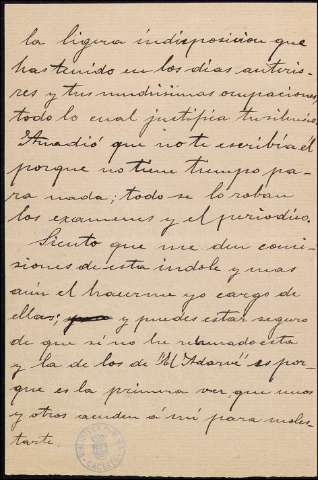 la ligera indisposicion que
has tenido en los dias anterio-
res y tus muchisimas ocupaciones,
todo lo cual justifica tu silencio.
Añadió que no te escribia él
porque no tiene tiempo pa-
ra nada; todo se lo roban
los examenes y el periodico.
Siento que me den comi-
siones de esta indole y mas
aún el hacerme yo cargo de
ellas; y puedes estar seguro
de que si no he rehusado esta
y la de los de "El Adarve" es por-
que es la primera vez que unos
y otros acuden á mi para moles-
tarte.